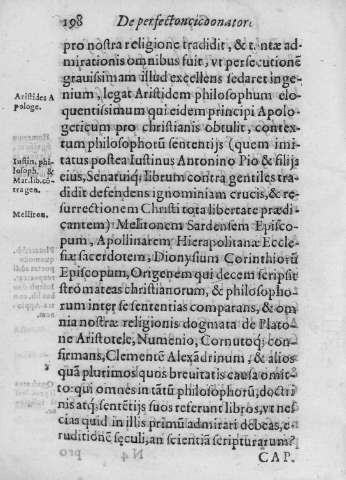 198 De perfectonciconatori
pro nostra religione tradidit, & t. ntæ ad-
mirationis omnibus fuit, vt persecutionē
grauissimam illud excellens sedaret inge-
nium, legat Aristidem philosophum elo-
quentissimum qui eidem principi Apolo-
geticum pro christianis obtulit, contex-
tum philosophorū sententijs (quem imi-
tatus postea Iustinus Antonino Pio & filijs
eius, Senatuiq; librum contra gentiles tra-
didit defendens ignominiam crucis, & re-
surrectionem Christi tota libertate prædi-
cantem) Melitonem Sardensem Episco-
pum, Apollinarem, Hierapolitanæ Eccle-
siæ sacerdotem, Dionysium Corinthiorū
Episcopum, Origenem qui decem scripsit
stromateas christianorum, & philosopho-
rum inter se sententias comparans, & om
nia nostræ religionis dogmata de Plato-
ne Aristotele, Numenio, Cornutoq; con-
firmans, Clementē Alexādrinum, & alios
quā plurimos quos breuitatis causa omit-
to: qui omnes in tātū philosophorū, doctri
nis atq; sentētijs suos referunt libros, vt nes
cias quid in illis primū admirari debeas, e-
ruditionē sęculi, an scientiā scripturarum?
CAP.
Aristides A
pologe.
Iustin. phi-
losoph. &
Mar. lib. cō-
tra gen.
Melliton.